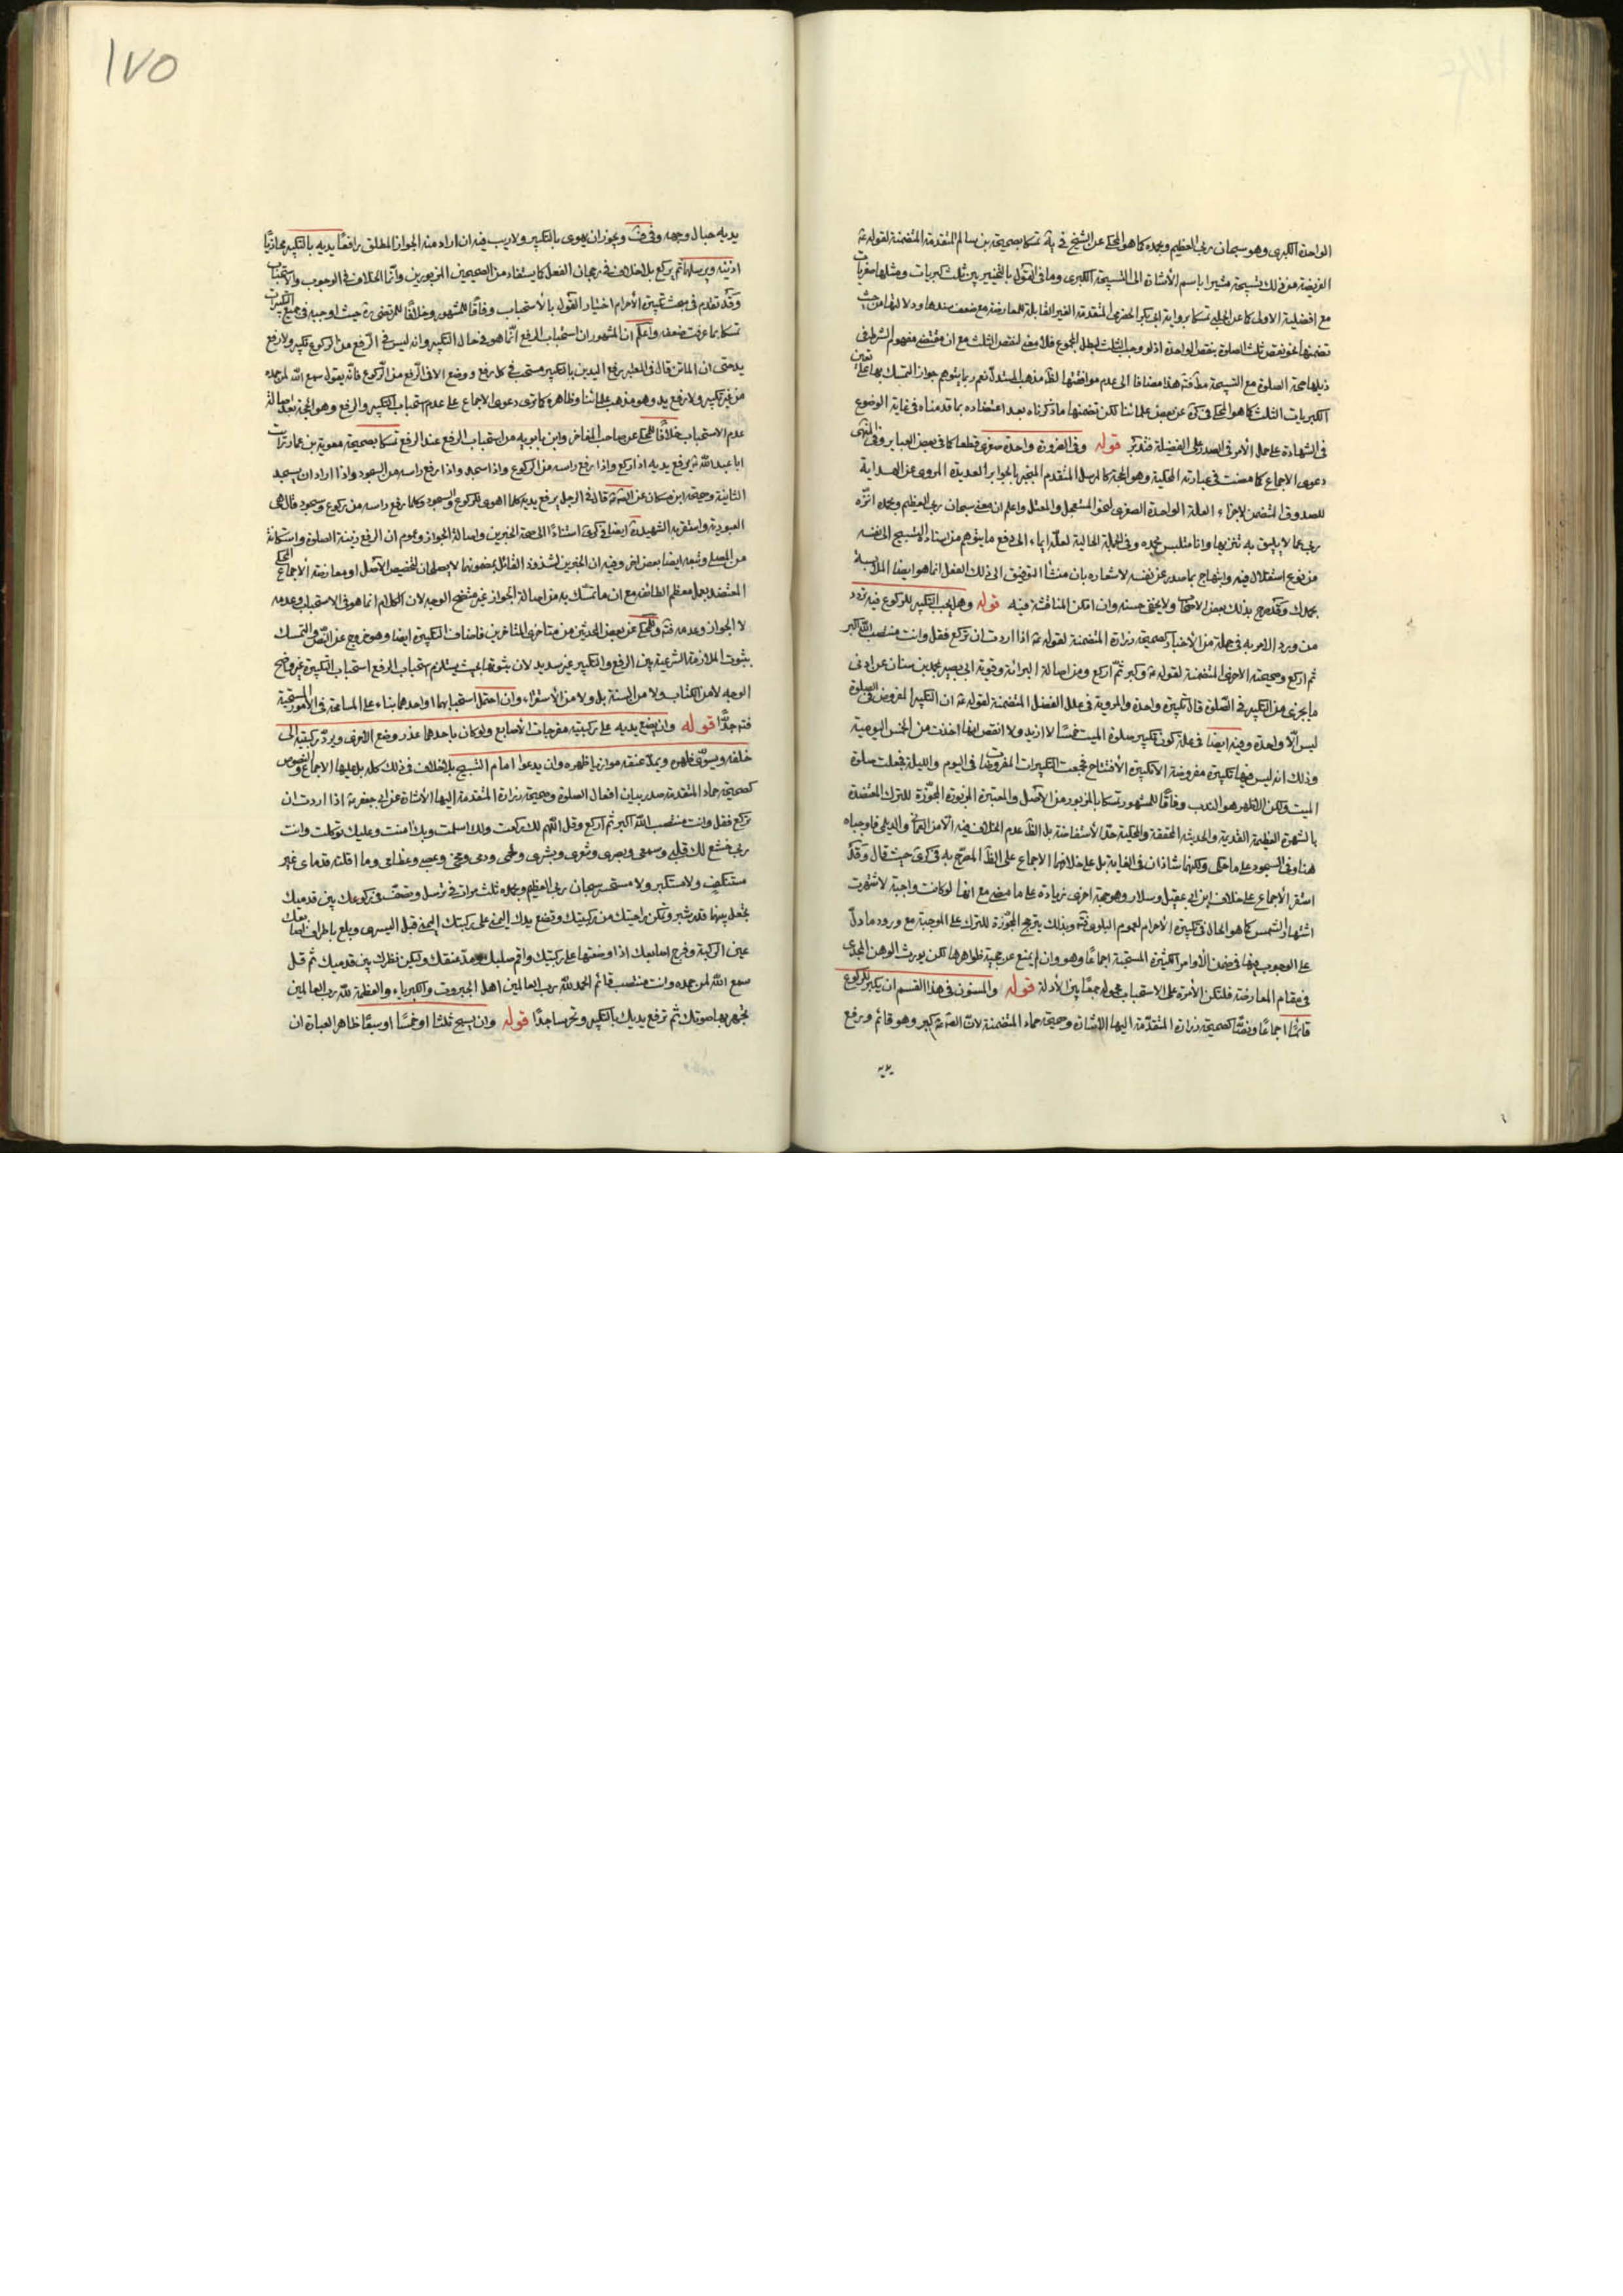 الواحدة الكبرى وهو سبحان ربي العظيم وبحمده كما هو المحكي عن الشيخ في يه تمسكا بصحيحة بن سالم المتقدمة المتضمنة لقوله ع
الفريضة من ذلك تسبيحة مشيرا باسم الاشارة الى التسبيحة الكبرى وما في القول بالتخيير بين ثلث كبريات ومثلها صغريات
مع افضلية الاولى كما عن الحلبي تمسكا برواية ابي بكر الحضرمي المتقدمة الغير القابلة للمعارضة مع ضعف سندها ودلالتها من حيث
تضمنها نقص ثلث الصلوة بنقص الواحدة اذ لو وجب الثلث لبطل المجموع فلا معنى لنقص الثلث مع ان مقتضى مفهوم الشرط في
ذيلها صحة الصلوة مع التسبيحة هذا مضافا الى عدم موافقتها لظ مذهب المستدل نعم ربما يتوهم جواز التمسك بها على تعين
الكبريات الثلث كما هو المحكي في كرة عن بعض علمائنا لكن تضمنها ما ذكرناه بعد اعتضاده بما قدمناه في غاية الوضوع
في الشهادة على حمل الامر في الصدر على الفضيلة فتدبر قوله وفي الضرورة واحدة صغرى قطعا كما في بعض العباير وفي المنتهى
دعوى الاجماع كما مضت في عبارته المحكية وهو الحجة كالمرسل المتقدم المنجبر بالجوابر العديدة المروي عن الهداية
للصدوق المتضمن لاجزاء العلة الواحدة الصغرى لنحو المستعجل والمعتل واعلم ان معنى سبحان ربي العظيم وبحمده انزه
ربي عما لا يليق به تنزيها وانا متلبس بحمده وفي الجملة الحالية لعله ايماء الى دفع ما يتوهم من اسناد التسبيح الى نفسه
من نوع استقلال فيه وابتهاج بما صدر عن نفسه لاشعاره بان منشأ التوفيق الى ذلك الفعل انما هو ايضا الملابسة
بحمدك وقد صرح بذلك بعض الاصحاب ولا يخفى حسنه وان امكن المناقشة فيه قوله وهل يجب التكبير للركوع فيه تردد
من ورود الامر به في جملة من الاخبار كصحيحة زرارة المتضمنة لقوله ع اذا اردت ان تركع فقل وانت منتصب الله اكبر
ثم اركع وصحيحته الاخرى المتضمنة لقوله ع وكبر ثم اركع ومن اصالة البرائة وقوية ابي بصير محمد بن سنان عن ادنى
ما يجزي من التكبير في الصلوة قال تكبيرة واحدة والمروية في علل الفضل المتضمنة لقوله ع ان التكبير المفروض في الصلوة
ليس الا واحدة وفيه ايضا في علة كون تكبير صلوة الميت خمسا لا ازيد ولا انقص انها اخذت من الخمس اليومية
وذلك انه ليس فيها تكبيرة مفروضة الا تكبيرة الافتتاح فجمعت التكبيرات المفروضات في اليوم والليلة فجعلت صلوة
الميت ولكن الاظهر هو الندب وفاقا للمشهور تمسكا بالمزبور من الاصل والمعتبرة المزبورة المجوزة للترك المعتضدة
بالشهرة العظيمة القديمة والحديثة المحققة والمحكية حد الاستفاضة بل الظ عدم الخلاف فيه الا من العماني والديلمي فاوجباه
هنا وفي السجود على ما حكي ولكنهما شاذان في الغاية بل على خلافهما الاجماع على الظ المصرح به في كرى حيث قال وقد
استقر الاجماع على خلاف ابن ابي عقيل وسلار وهو حجة اخرى زيادة على ما مضى مع انها لو كانت واجبة لاشتهرت
اشتهار الشمس كما هو الحال في تكبيرة الاحرام لعموم البلوى وبذلك يترجح المجوزة للترك على الموجبة مع ورود ما دل
على الوجوب فيها في ضمن الاوامر الكثيرة المستحبة اجماعا وهو وان لم يمنع عن حجية ظواهرها لكن يورث الوهن المجدي
في مقام المعارضة فلتكن الامرة على الاستحباب محمولة جمعا بين الادلة قوله والمسنون في هذا القسم ان يكبر للركوع
قائما اجماعا ونصا كصحيحة زرارة المتقدمة اليها الاشارة وصحيحة حماد المتضمنة لان الص ع كبر وهو قائم ورفع
يديه
١٧٥
يديه حيال وجهه وفي ف ويجوز ان يهوي بالتكبير ولا ريب فيه ان اراد منه الجواز المطلق رافعا يديه بالتكبير محاذيا
اذنيه ويرسلهما ثم يركع بلا خلاف في رجحان الفعل كما يستفاد من الصحيحين المزبورين وانما الخلاف في الوجوب والاستحباب
وقد تقدم في بحث تكبيرة الاحرام اختيار القول بالاستحباب وفاقا للمشهور وخلافا للمرتضى ره حيث اوجبه في جميع التكبيرات
تمسكا بما عرفت ضعفه واعلم ان المشهور ان استحباب الرفع انما هو في حال التكبير وانه ليس في الرفع من الركوع تكبير ولا رفع
يد حتى ان الماتن قال في المعتبر رفع اليدين بالتكبير مستحب في كل رفع ووضع الا في الرفع من الركوع فانه يقول سمع الله لمن حمده
من غير تكبير ولا رفع يد وهو مذهب علمائنا وظاهره كما ترى دعوى الاجماع على عدم استحباب التكبير والرفع وهو الحجة بعد اصالة
عدم الاستحباب خلافا للمحكي عن صاحب الفاخر وابن بابويه من استحباب الرفع عند الرفع تمسكا بصحيحة معوية بن عمار رايت
ابا عبد الله ع يرفع يديه اذا ركع واذا رفع راسه من الركوع واذا سجد واذا رفع راسه من السجود واذا اراد ان يسجد
الثانية وصحيحة ابن مسكان عن الص ع قال في الرجل يرفع يديه كلما اهوى للركوع والسجود وكلما رفع راسه من ركوع وسجود قال هي
العبودية واستقربه الشهيد ره ايضا في كرى استنادا الى صحة الخبرين واصالة الجواز وعموم ان الرفع زينة الصلوة واستكانة
من المصلي وتبعه ايضا بعض اخر وفيه ان الخبرين لشذوذ القائل بمضمونهما لا يصلحان لتخصيص الاصل او معارضة الاجماع المحكي
المعتضد بعمل معظم الطائفة مع ان ما تمسك به من اصالة الجواز غير متضح الوجه لان الكلام انما هو في الاستحباب وعدمه
لا الجواز وعدمه فته وللمحكي عن بعض المحدثين من متاخري المتاخرين فاضاف التكبيرة ايضا وهو خروج عن النص والتمسك
بثبوت الملازمة الشرعية بين الرفع والتكبير غير سديد لان ثبوتها بحيث يستلزم استحباب الرفع استحباب التكبيرة غير واضح
الوجه لا من الكتاب ولا من السنة بل ولا من الاستقراء وان احتمل استحبابهما او احدهما بناء على المسامحة في الامور المستحبة
فته جدا قوله وان يضع يديه على ركبتيه مفرجات الاصابع ولو كان باحدهما عذر وضع الاخرى ويرد ركبتيه الى
خلفه ويسوي ظهره ويمد عنقه موازيا ظهره وان يدعوا امام التسبيح بلا خلاف في ذلك كله بل عليها الاجماع والنصوص
كصحيحة حماد المتقدمة صدر بيان افعال الصلوة وصحيحة زرارة المتقدمة اليها الاشارة عن ابي جعفر ع اذا اردت ان
تركع فقل وانت منتصب الله اكبر ثم اركع وقل اللهم لك ركعت ولك اسلمت وبك امنت وعليك توكلت وانت
ربي خشع لك قلبي وسمعي وبصري وشعري وبشري ولحمي ودمي ومخي وعصبي وعظامي وما اقلته قدماي غير
مستنكف ولا مستكبر ولا مستحسر سبحان ربي العظيم وبحمده ثلث مرات في ترسل وتصف في ركوعك بين قدميك
تجعل بينهما قدر شبر وتمكن راحتيك من ركبتيك وتضع يدك اليمنى على ركبتك اليمنى قبل اليسرى وبلع باطراف اصابعك
عين الركبة وفرج اصابعك اذا وضعتها على ركبتيك واقم صلبك ومد عنقك وليكن نظرك بين قدميك ثم قل
سمع الله لمن حمده وانت منتصب قائم الحمد لله رب العالمين اهل الجبروت والكبرياء والعظمة لله رب العالمين
تجهر بها صوتك ثم ترفع يديك بالتكبير وتخر ساجدا قوله وان يسبح ثلثا او خمسا او سبعا ظاهر العبارة ان